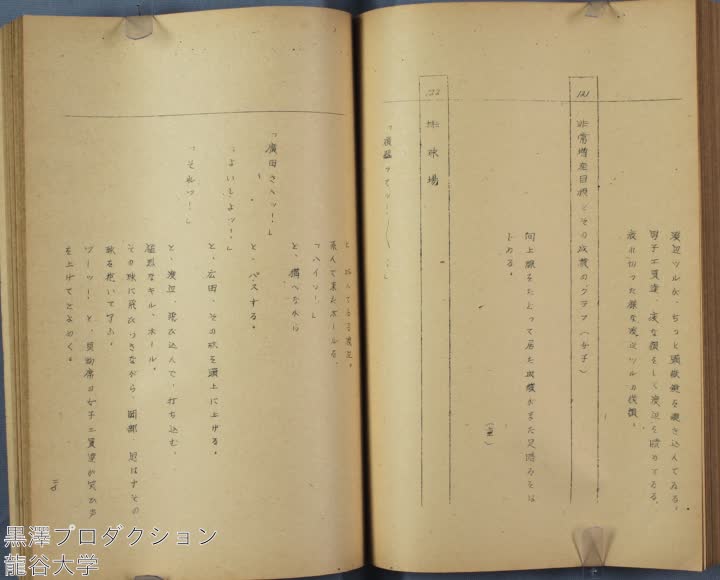 渡辺ツルが、ちっと顕微鏡を覗き込んでゐる。
女子工員達、変な顔をして渡辺を瞶めてゐる。
疲れ切った様な渡辺ツルの横顔。
121
非常増産目標とその成績のグラフ（女子）
向上線をたどって居た成績がまた足踏みをは
じめる。
122
排球場
「頑張ってッ！
と、叫んでゐる渡辺。
飛んで来たボールを、
「ハイッ！」
と、構へながら
「廣田さんッ！」
と、パスする。
「よいしょッ！」
と、広田、その球を頭上に上げる。
「それッ！」
と、渡辺、飛び込んで、打ち込む。
猛烈なキル、ボール。
その球に飛びつきながら、岡部
球を抱いて
ワーッ！と、見物席の女子工員達が
を上げてどよめく。
黒澤プロダクション
龍谷大学